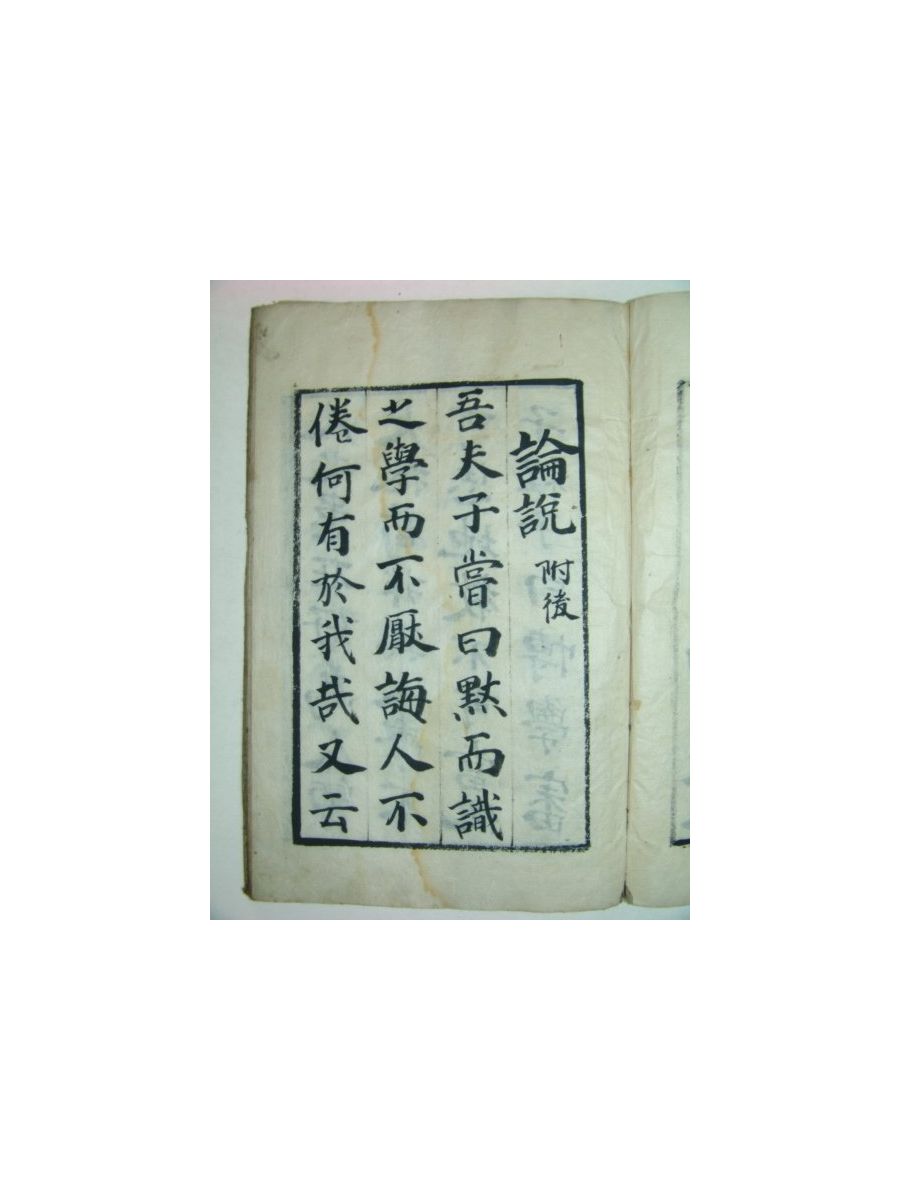 論說 附後
吾夫子嘗曰黙而識
之學而不厭誨人不
倦何有於我哉又云